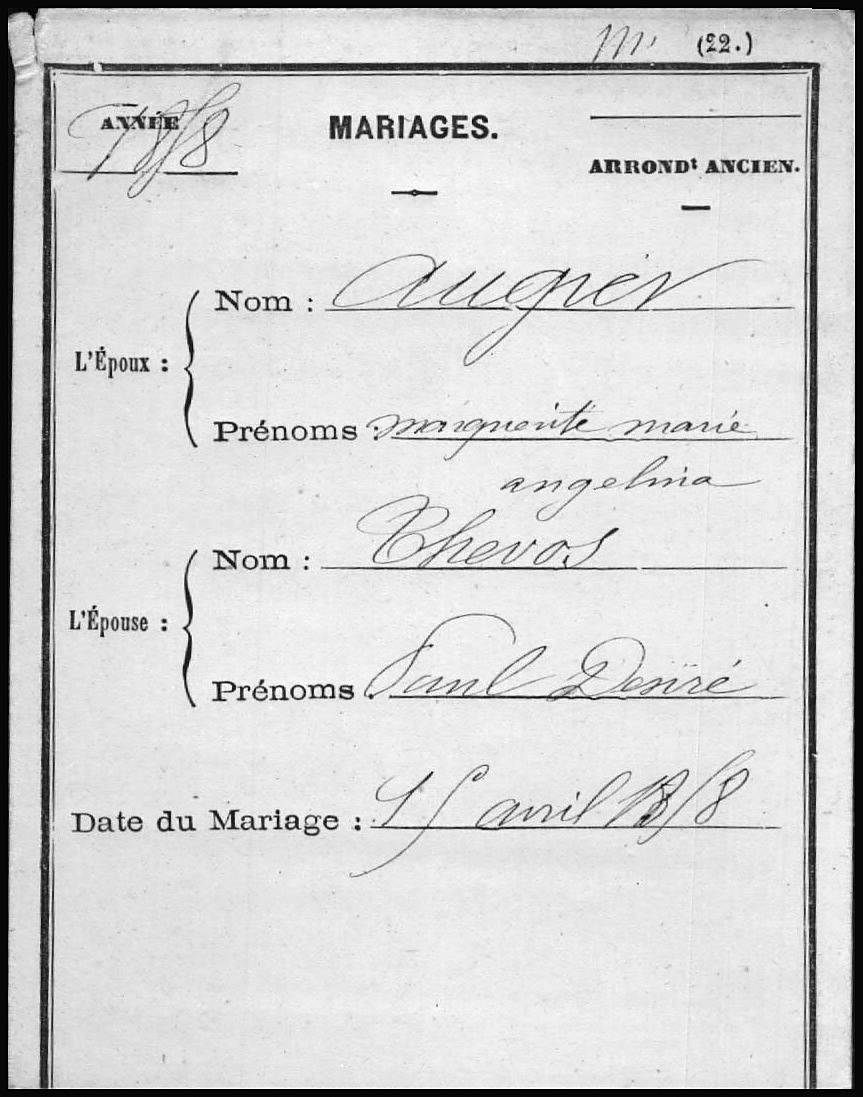 m (22.)
ANNÉE
1858
MARIAGES.
ARRONDt ANCIEN.
L'Époux :
Nom : Augier
Prénoms : marguerite marie
angelina
L'Épouse :
Nom : Thevos
Prénoms : Paul Desiré
Date du Mariage : 15 avril 1858